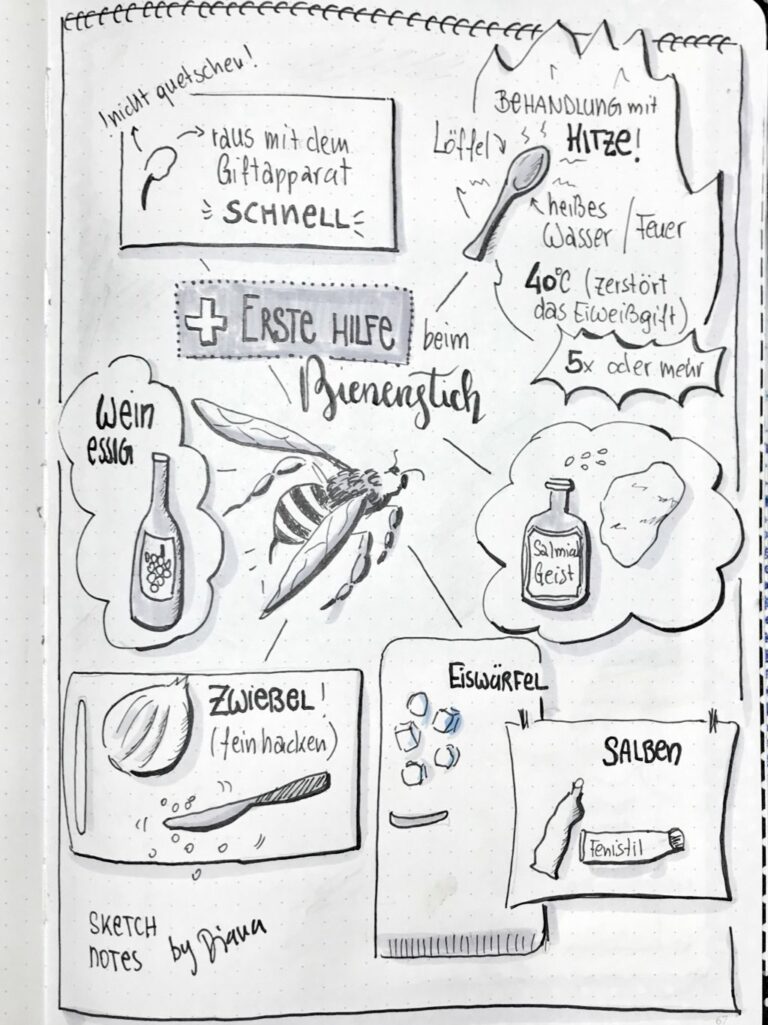 !nicht quetschen!
raus mit dem
Giftapparat
SCHNELL
BEHANDLUNG mit
HITZE!
Löffel
heißes
Wasser / Feuer
40°C (zerstört
das Eiweißgift)
5x oder mehr
+ ERSTE HILFE beim
Bienenstich
Wein
ESSIG
Salmiak
Geist
ZWIEBEL!
(fein hacken)
EISWÜRFEL
SALBEN
Fenistil
SKETCH
NOTES by Diana
67